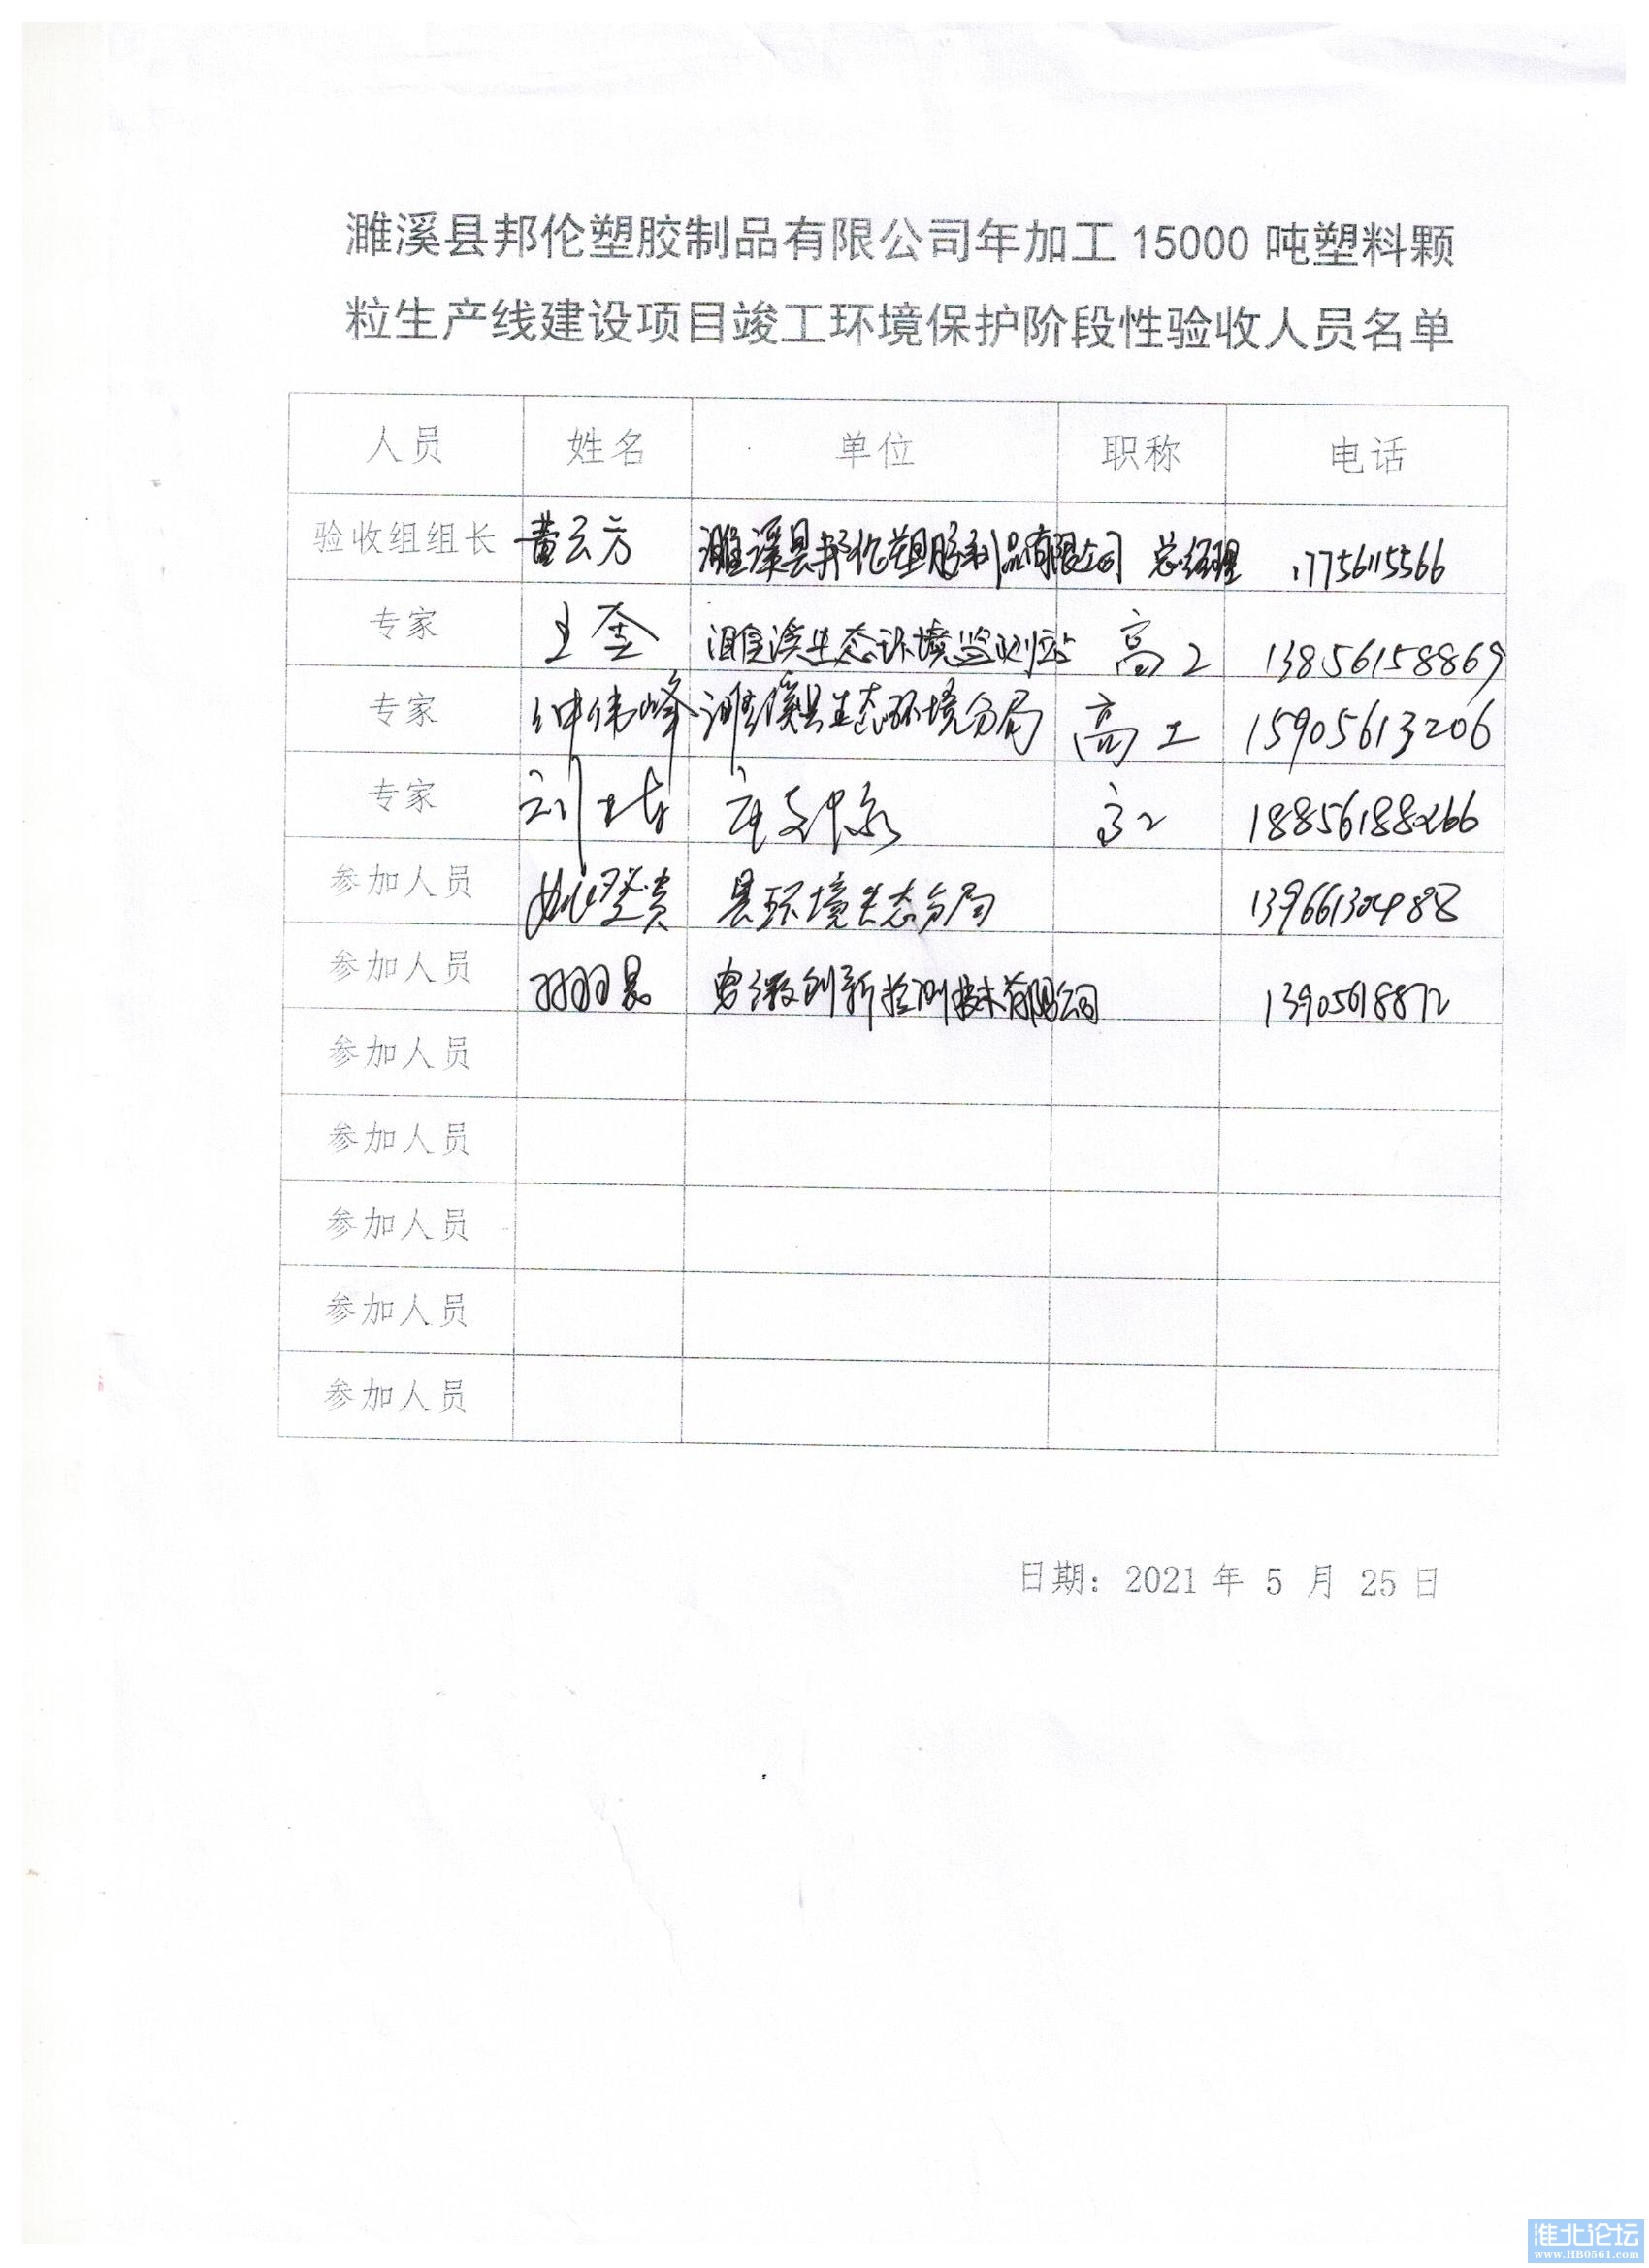 濉溪县邦伦塑胶制品有限公司年加工 15000 吨塑料颗
粒生产线建设项目竣工环境保护阶段性验收人员名单
人员 姓名 单位 职称 电话
验收组组长 黄云方 濉溪县邦伦塑胶制品有限公司 总经理 17756115566
专家 王 濉溪生态环境监测站 高工 13856158869
专家 钟伟峰 濉溪县生态环境分局 高工 15905613206
专家 刘 高工 18856188266
参加人员 姚登贵 县环境生态分局
参加人员 安徽创新检测技术有限公司
参加人员
参加人员
参加人员
参加人员
参加人员
日期: 2021 年 5 月 25 日
淮北论坛
www.HB0561.com